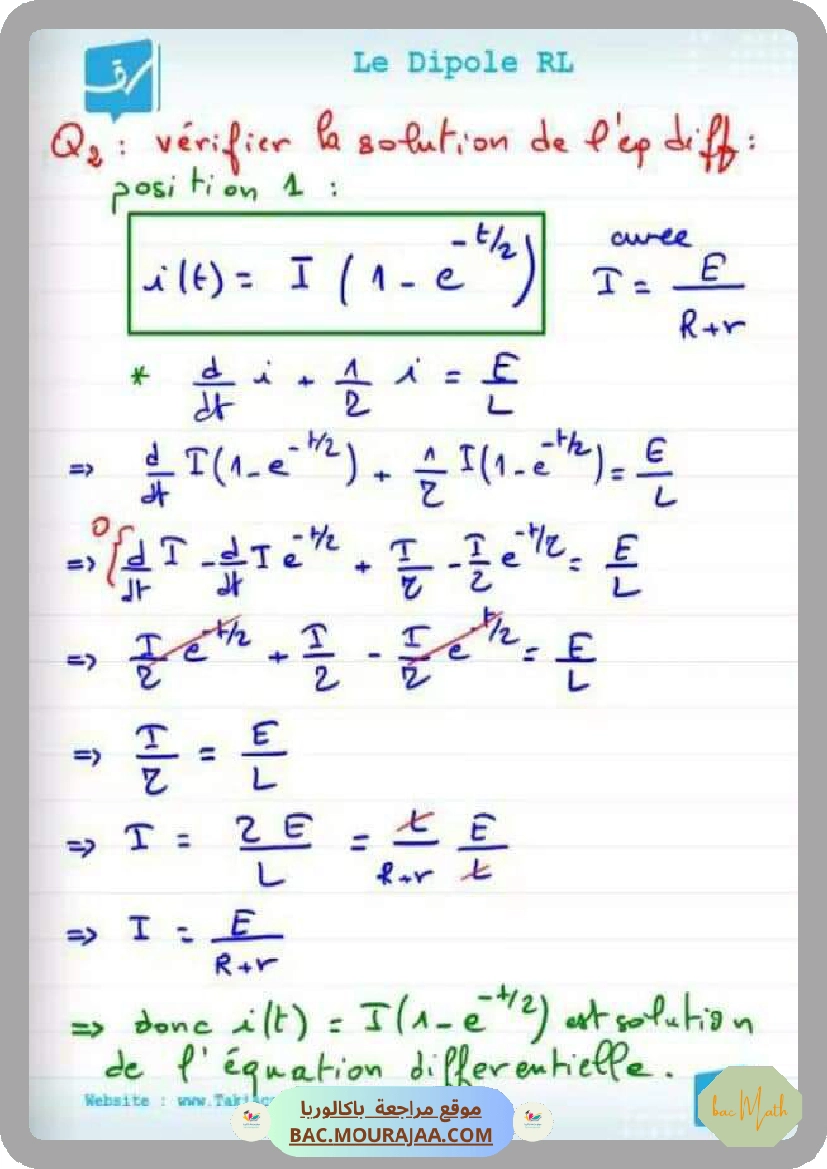 Le Dipole RL
Q2 : vérifier la solution de l'eq diff :
position 1 :
i(t) = I ( 1 - e^-t/τ ) avec I = E/(R+r)
* d/dt i + 1/τ i = E/L
=> d/dt I(1-e^-t/τ) + 1/τ I(1-e^-t/τ) = E/L
=> 0 { d/dt I - d/dt I e^-t/τ + I/τ - I/τ e^-t/τ = E/L
=> I/τ e^-t/τ + I/τ - I/τ e^-t/τ = E/L
=> I/τ = E/L
=> I = τ E/L = L/(R+r) E/L
=> I = E/(R+r)
=> donc i(t) = I(1-e^-t/τ) est solution
de l'équation differentielle.
Website : www.Taki
موقع مراجعة باكالوريا
BAC.MOURAJAA.COM
bac Math